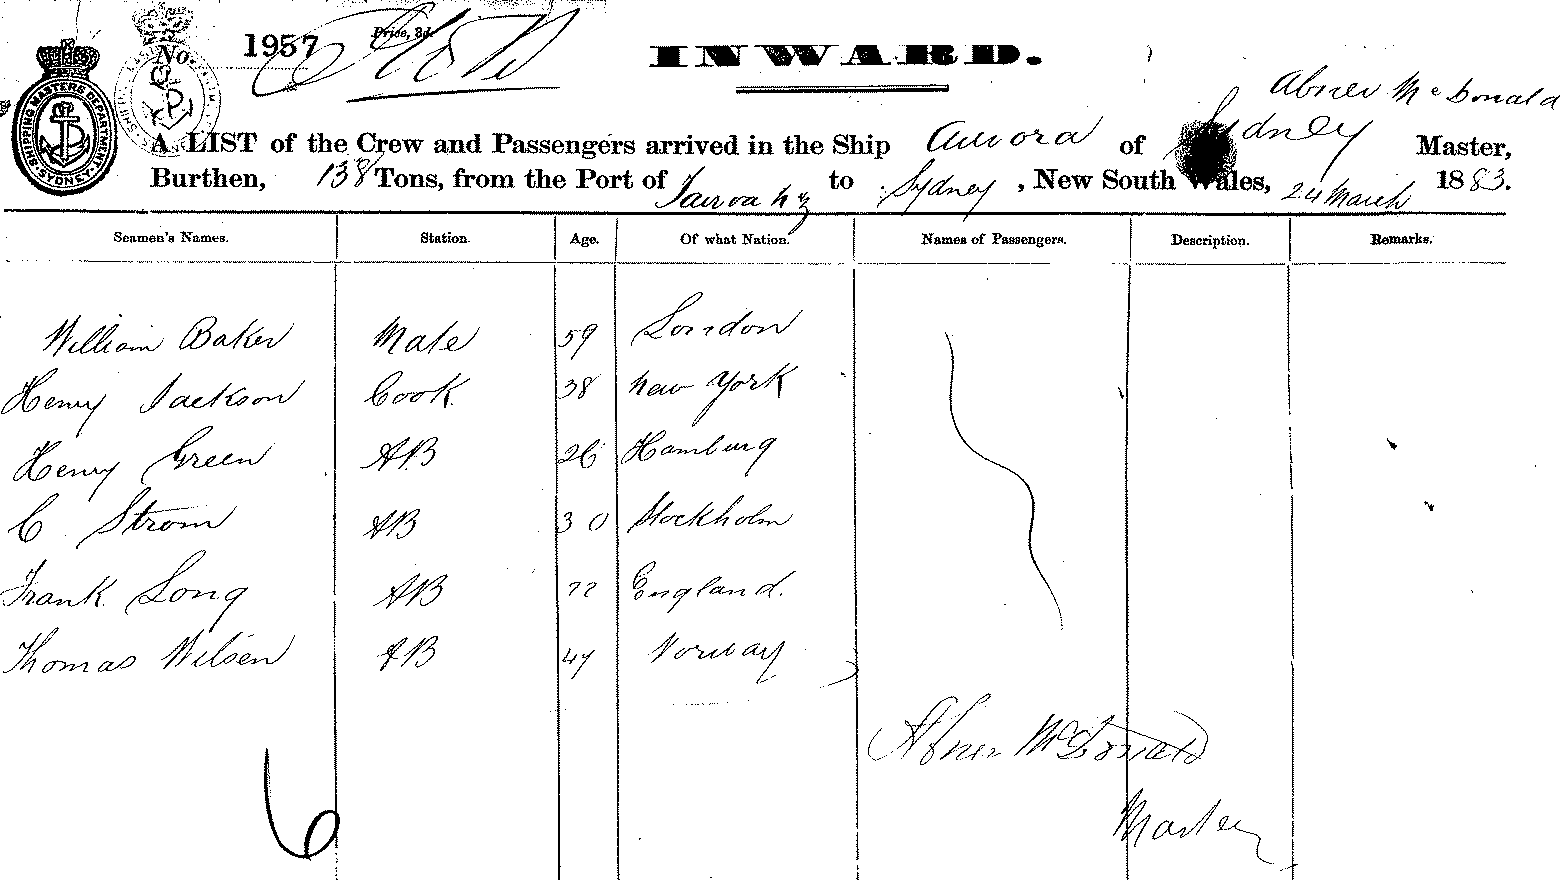 1957 Price, 3d.
No.
INWARD.
SHIPPING MASTERS DEPARTMENT
SYDNEY
Abner McDonald
A LIST of the Crew and Passengers arrived in the Ship Aurora of Sydney Master,
Burthen, 138 Tons, from the Port of Tairoa NZ to Sydney, New South Wales, 24 March 1883.
Seamen's Names. Station. Age. Of what Nation. Names of Passengers. Description. Remarks.
William Baker Mate 59 London
Henry Jackson Cook. 38 New York
Henry Green AB 26 Hamburg
C Strom AB 30 Stockholm
Frank Long AB 22 England.
Thomas Wilsen AB 47 Norway
Abner McDonald
Master
6